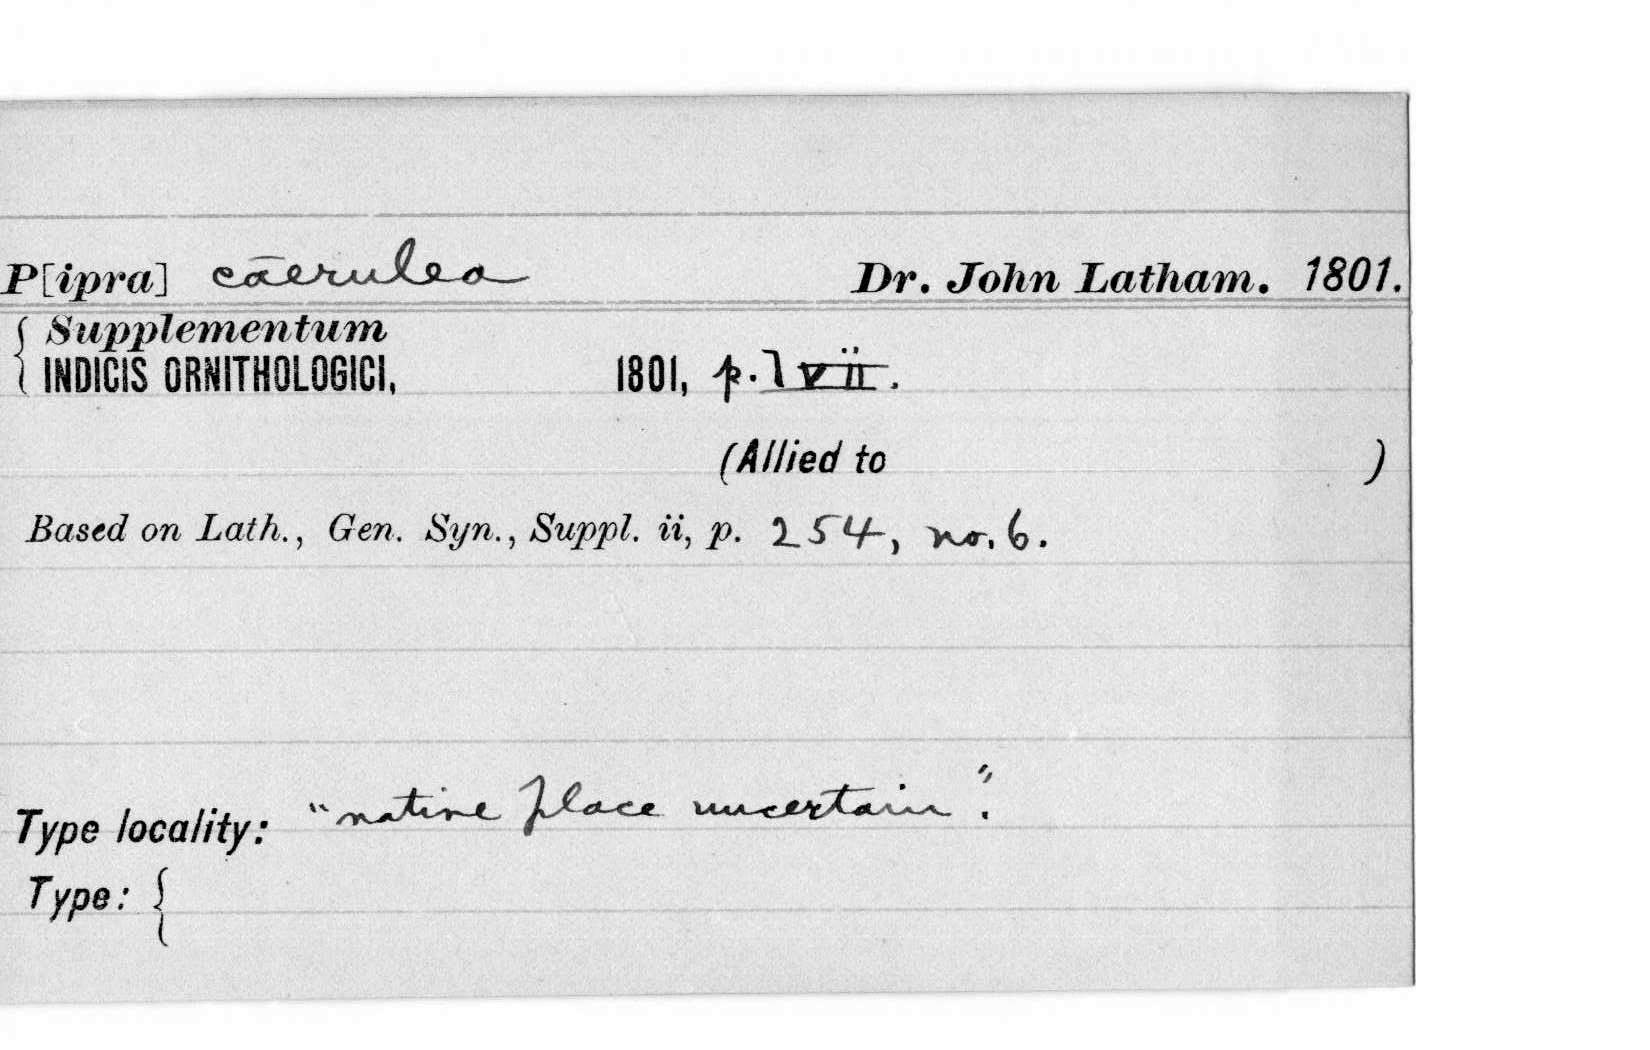 P[ipra] cāerulea Dr. John Latham. 1801.
{ Supplementum
INDICIS ORNITHOLOGICI, 1801, p. lvii.
(Allied to )
Based on Lath., Gen. Syn., Suppl. ii, p. 254, no. 6.
Type locality: "native place uncertain".
Type: {